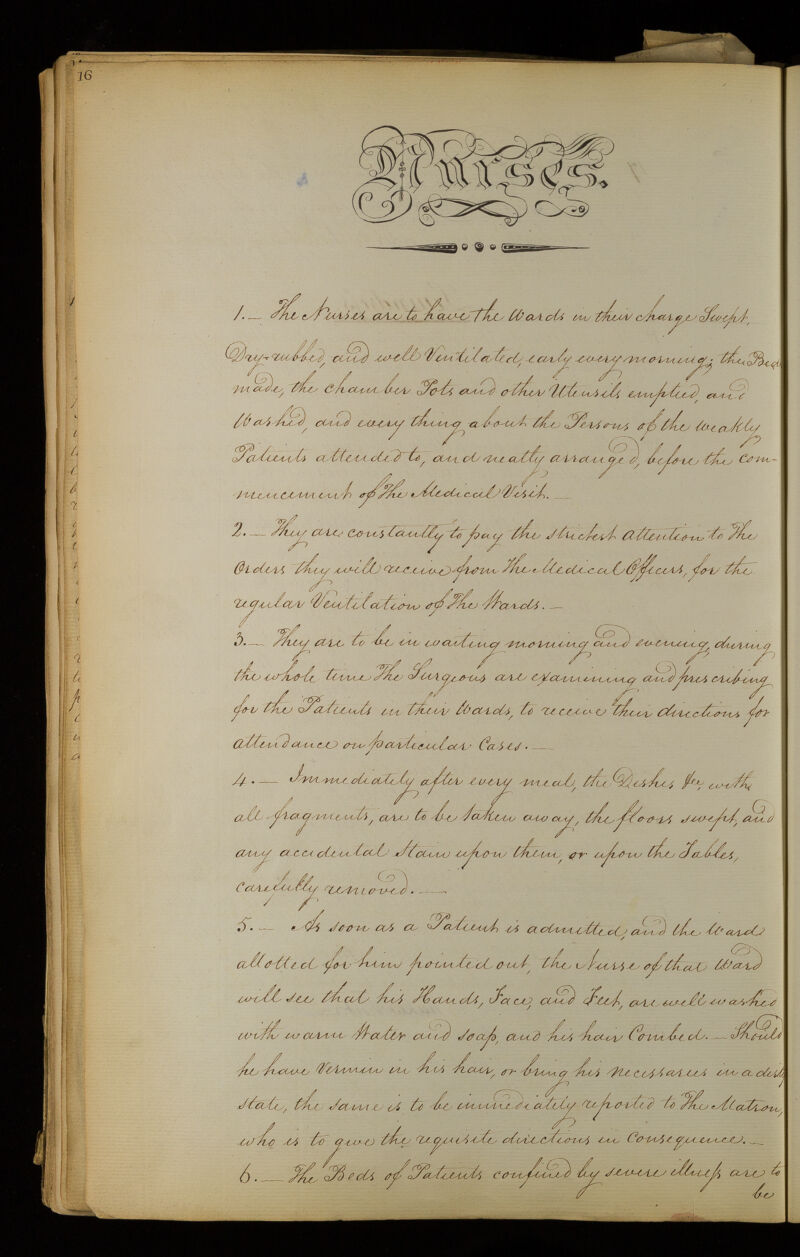 16
Nurses.
1. — The Nurses are to have the Wards in their charge Swept,
Dry-rubbed, and well Ventilated, early every morning; the Beds
made, the chamber Pots and other Utensils emptied, and
Washed, and every thing about the Persons of the weakly
Patients attended to, and neatly arranged, before the com-
mencement of The Medical Visit. —
2. — They are constantly to pay the strictest attention to The
Orders they will receive from The Medical Officers, for the
regular Ventilation of The Wards. —
3. — They are to be in waiting morning and evening, during
the whole time The Surgeons are examining and prescribing
for the Patients in their Wards, to receive their directions for
attendance on particular Cases. —
4. — Immediately after every meal, the Dishes &c, with
all fragments, are to be taken away, the floors swept, and
any accidental Stain upon them, or upon the Tables,
carefully removed. —
5. — As soon as a Patient is admitted, and the Ward
allotted for him pointed out, the Nurse of that Ward
will see that his Hands, Face, and Feet, are well washed
with warm Water and soap, and his hair Combed. — Should
he have Vermin in his hair, or bring his necessaries in a dirty
state, the same is to be immediately reported to The Matron,
who is to give the requisite directions in Consequence. —
6. — The Beds of Patients confined by severe illness are to
be